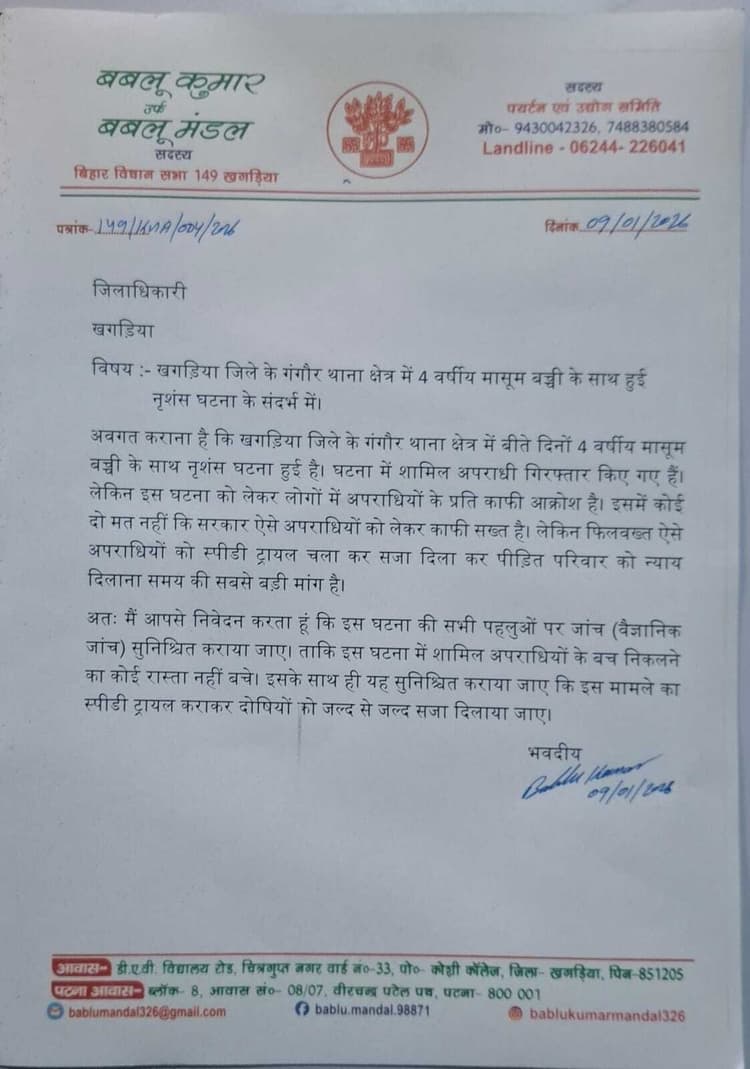 बबलू कुमार
उर्फ
बबलू मंडल
सदस्य
बिहार विधान सभा 149 खगड़िया
सदस्य
पर्यटन एवं उद्योग समिति
मो०- 9430042326, 7488380584
Landline - 06244- 226041
पत्रांक- 149/KNA/004/2026
दिनांक 09/01/2026
जिलाधिकारी
खगड़िया
विषय :- खगड़िया जिले के गंगौर थाना क्षेत्र में 4 वर्षीय मासूम बच्ची के साथ हुई
नृशंस घटना के संदर्भ में।
अवगत कराना है कि खगड़िया जिले के गंगौर थाना क्षेत्र में बीते दिनों 4 वर्षीय मासूम
बच्ची के साथ नृशंस घटना हुई है। घटना में शामिल अपराधी गिरफ्तार किए गए हैं।
लेकिन इस घटना को लेकर लोगों में अपराधियों के प्रति काफी आक्रोश है। इसमें कोई
दो मत नहीं कि सरकार ऐसे अपराधियों को लेकर काफी सख्त है। लेकिन फिलवख्त ऐसे
अपराधियों को स्पीडी ट्रायल चला कर सजा दिला कर पीड़ित परिवार को न्याय
दिलाना समय की सबसे बड़ी मांग है।
अतः मैं आपसे निवेदन करता हूं कि इस घटना की सभी पहलुओं पर जांच (वैज्ञानिक
जांच) सुनिश्चित कराया जाए। ताकि इस घटना में शामिल अपराधियों के बच निकलने
का कोई रास्ता नहीं बचे। इसके साथ ही यह सुनिश्चित कराया जाए कि इस मामले का
स्पीडी ट्रायल कराकर दोषियों को जल्द से जल्द सजा दिलाया जाए।
भवदीय
Bablu Kumar
09/01/2026
आवास- डी.ए.वी. विद्यालय रोड, चित्रगुप्त नगर वार्ड नं०-33, पो०- कोशी कॉलेज, जिला- खगड़िया, पिन-851205
पटना आवास- ब्लॉक- 8, आवास सं०- 08/07, वीरचन्द पटेल पथ, पटना- 800 001
bablumandal326@gmail.com
bablu.mandal.98871
bablukumarmandal326